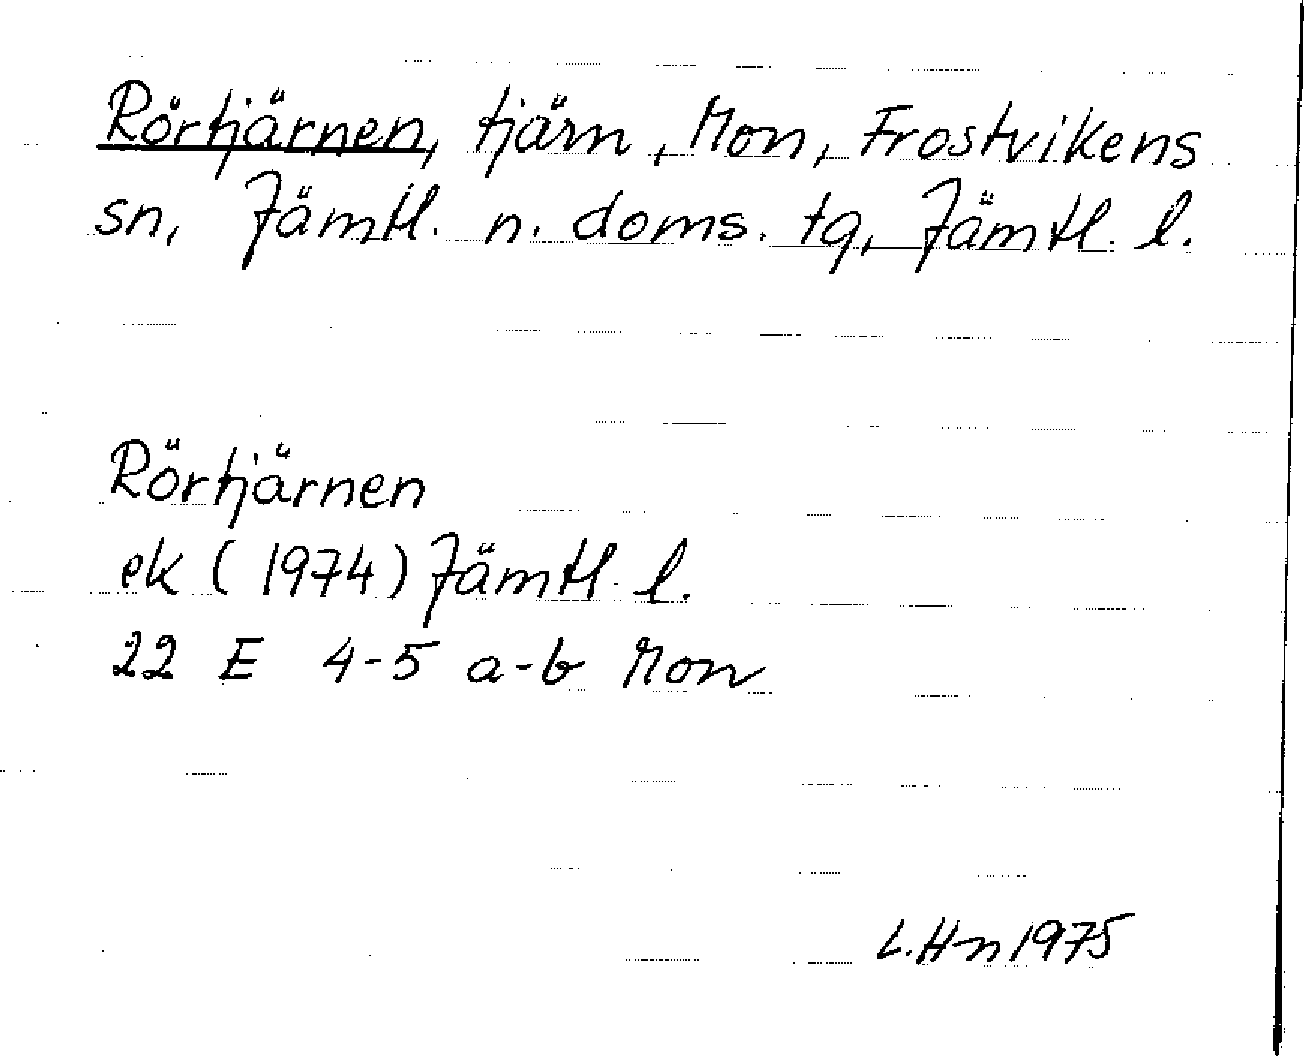 Rörtjärnen, tjärn, Mon, Frostvikens
sn, Jämtl. n. doms. tg, Jämtl. l.
Rörtjärnen
ek (1974) Jämtl. l.
22 E 4-5 a-b Mon
L.Hn 1975